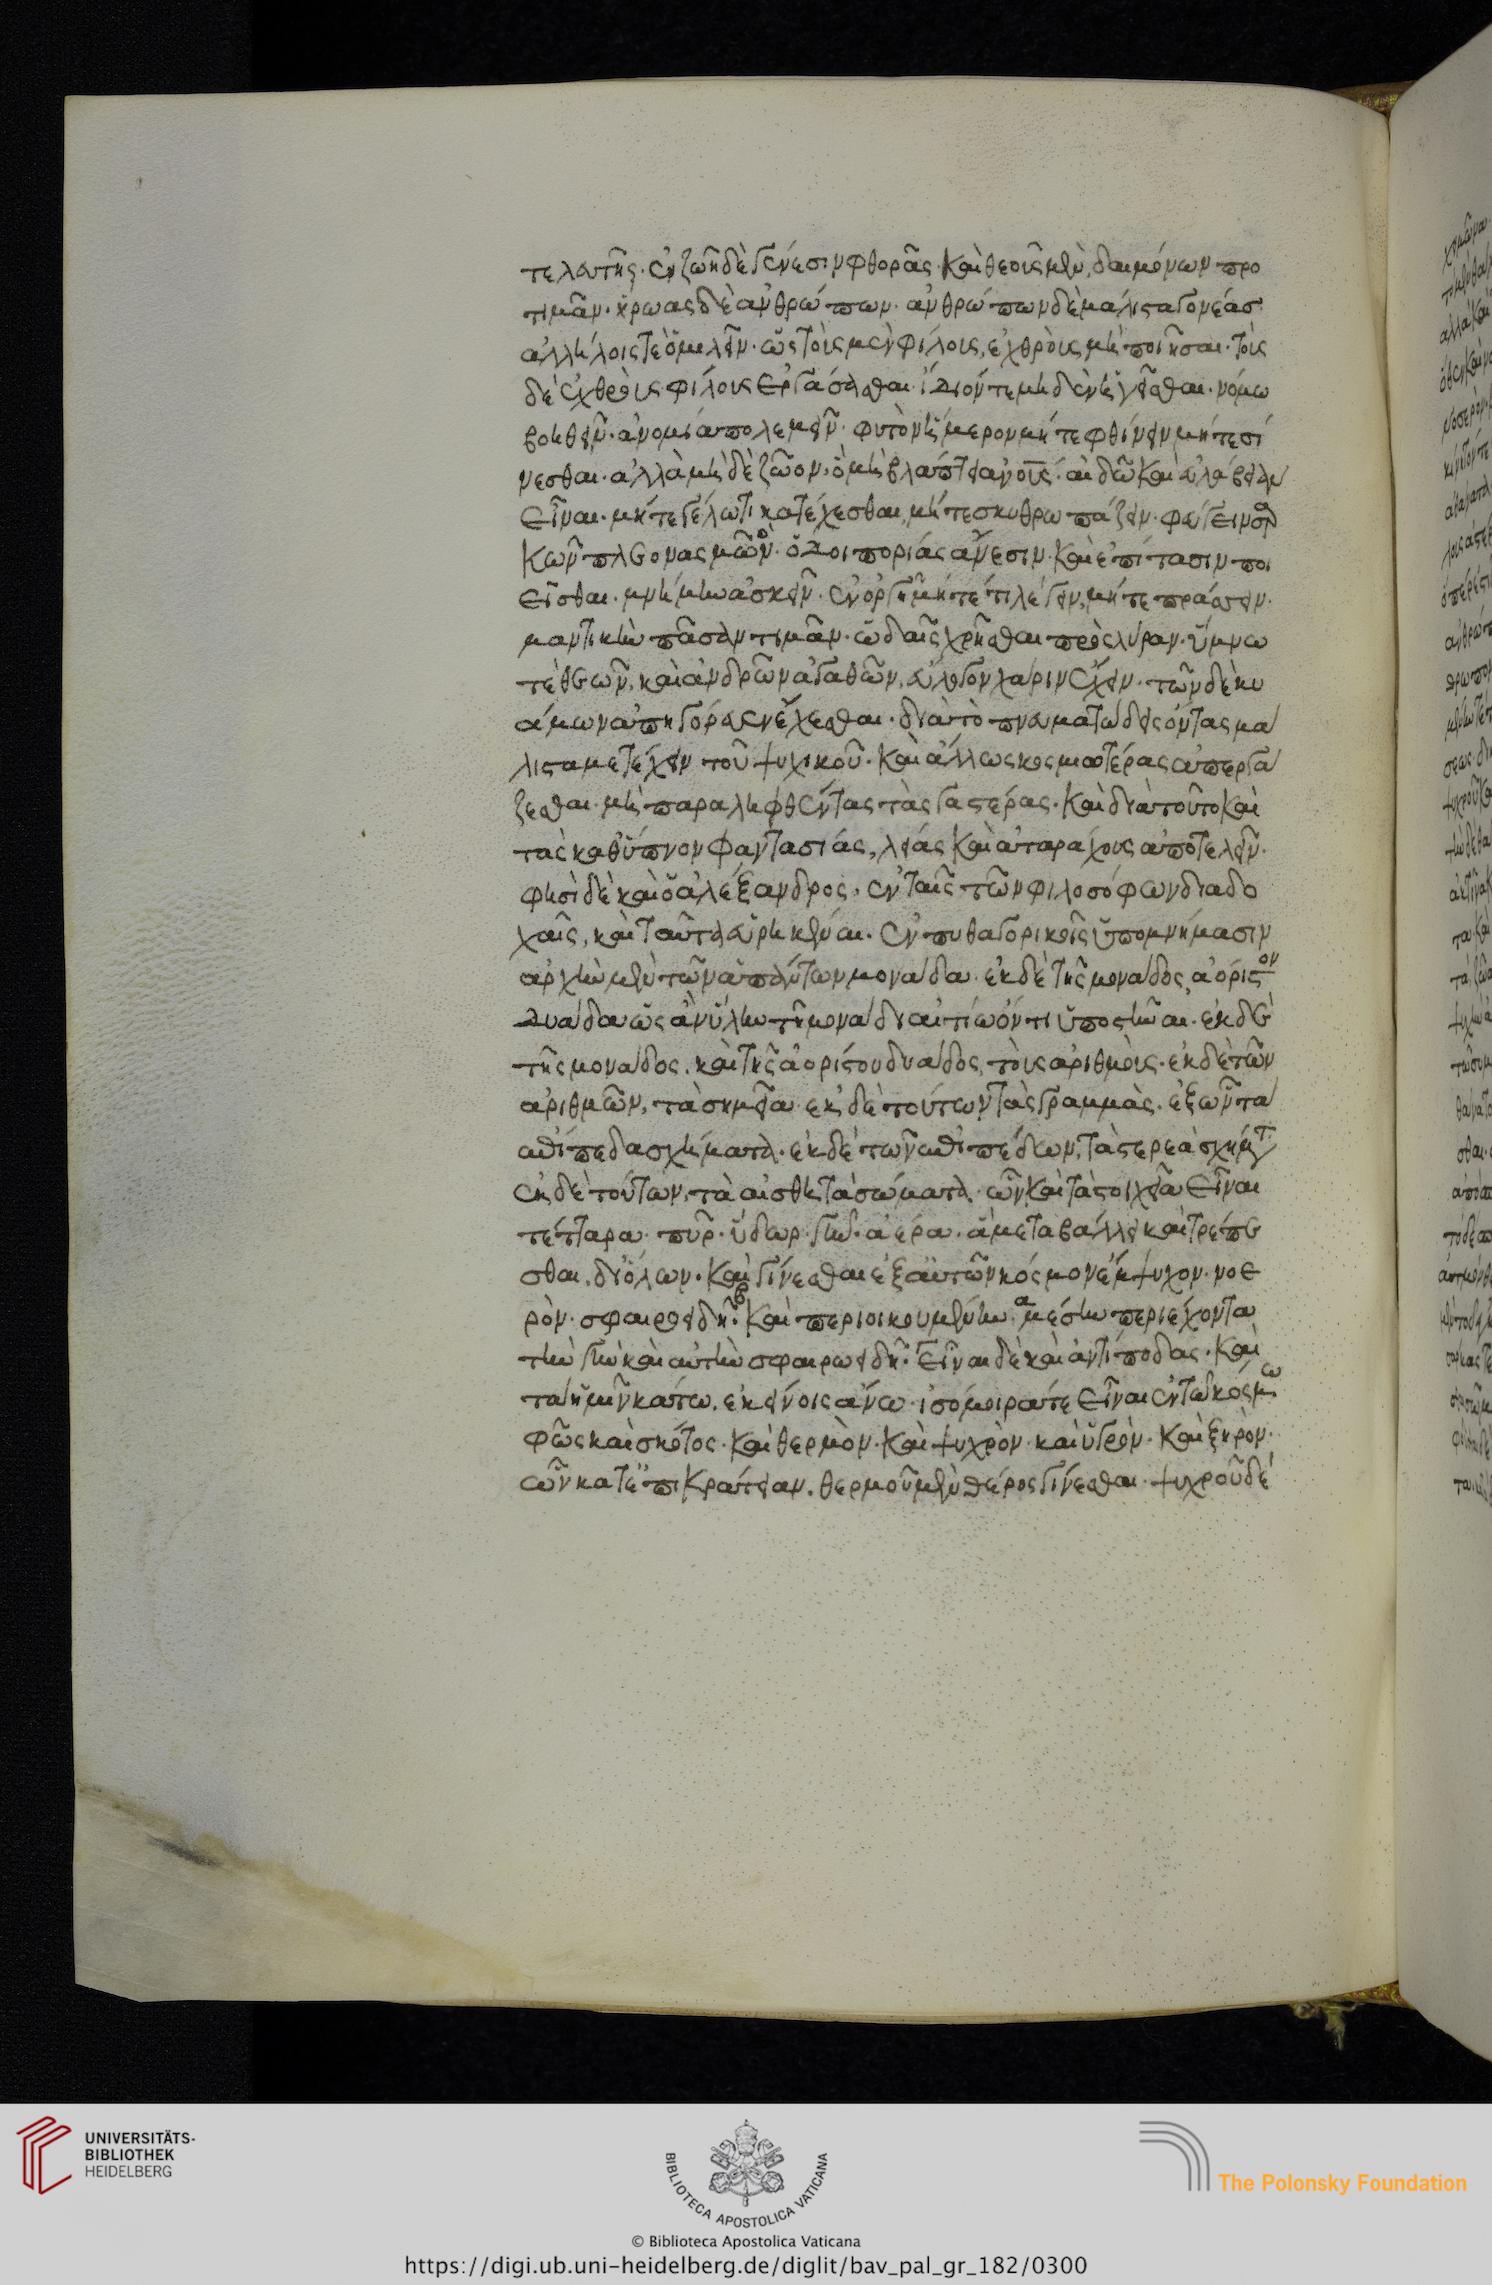 τελευτῆς· ἐν ζωῆ δὲ γένεσιν φθορᾶς· καὶ θεοὺς μὲν, δαιμόνων προ
τιμᾶν· ἥρωας δὲ ἀνθρώπων· ἀνθρώπων δὲ μάλιστα γονέας·
ἀλλήλοις τὲ ὁμιλεῖν· ὡς τοὺς μὲν φίλους, ἐχθροὺς μὴ ποιῆσαι· τοὺς
δὲ ἐχθροὺς φίλους ἐργάσασθαι· ἴδιόν τε μηδὲν ἡγεῖσθαι· νόμω
βοηθεῖν· ἀνομία πολεμεῖν· φυτὸν ἥμερον μήτε φθίνειν μήτε σί
νεσθαι· ἀλλὰ μὴ δὲ ζῶον, ὃ μὴ βλάπτει ἀνους· αἰδῶ καὶ εὐλάβειαν
εἶναι· μήτε γέλωτι κατέχεσθαι, μήτε σκυθρωπάζειν· φεύγειν σαρ
κῶν πλεονασμῶν· ὁδοιπορίας ἄνεσιν καὶ ἐπίτασιν ποι
εῖσθαι· μνήμην ἀσκεῖν· ἐν ὀργῆ μήτέ τι λέγειν, μήτε πράσσειν·
μαντικὴν πᾶσαν τιμᾶν· ὠδαῖς χρῆσθαι πρὸς λύραν· ὕμνω
τὲ θεῶν, καὶ ἀνδρῶν ἀγαθῶν, εὔλογον χάριν ἔχειν· τῶν δὲ κυ
άμων ἀπηγόρευεν ἔχεσθαι· διὰ τὸ πνευματώδεις ὄντας μά
λιστα μετέχειν τοῦ ψυχικοῦ· καὶ ἄλλως κοσμιωτέρας ἀπεργά
ζεσθαι· μὴ παραληφθέντας τὰς γαστέρας· καὶ διὰ τοῦτο καὶ
τὰς καθ᾽ ὕπνον φαντασίας, λείας καὶ ἀταράχους ἀποτελεῖν·
φησὶ δὲ καὶ ὁ ἀλέξανδρος, ἐν ταῖς τῶν φιλοσόφων διαδο
χαῖς, καὶ ταῦτα εὑρηκέναι· ἐν πυθαγορικοῖς ὑπομνήμασιν
ἀρχὴν μὲν τῶν ἁπάντων μονάδα· ἐκ δὲ τῆς μονάδος, ἀόριστον
δυάδα ὡς ἂν ὕλην τῆ μονάδι αἰτίω ὄντι ὑποστῆναι· ἐκ δὲ
τῆς μονάδος· καὶ τῆς ἀορίστου δυάδος, τοὺς ἀριθμούς· ἐκ δὲ τῶν
ἀριθμῶν, τὰ σημεῖα· ἐκ δὲ τούτων τὰς γραμμάς· ἐξ ὧν τὰ
ἐπίπεδα σχήματα· ἐκ δὲ τῶν ἐπιπέδων, τὰ στερεὰ σχήματ
ἐκ δὲ τούτων, τὰ αἰσθητὰ σώματα· ὧν καὶ τὰ στοιχεῖα εἶναι
τέτταρα· πῦρ· ὕδωρ· γῆν· ἀέρα· ἃ μεταβάλλει καὶ τρέπε
σθαι, δι᾽ ὅλων· καὶ γίνεσθαι ἐξ αὐτῶν κόσμον ἔμψυχον· νοε
ρὸν· σφαιροειδῆ·β καὶ περιοικουμένην·α μέσην περιέχοντα
τὴν γῆν καὶ αὐτὴν σφαιροειδῆ·γ εἶναι δὲ καὶ ἀντίποδας· καὶ
τὰ ἡμῖν κάτω, ἐκείνοις ἄνω· ἰσόμοιρά τε εἶναι ἐν τῶ κόσμω
φῶς καὶ σκότος· καὶ θερμὸν· καὶ ψυχρὸν· καὶ ὑγρὸν· καὶ ξηρὸν·
ὧν κατ᾽ ἐπικράτειαν, θερμοῦ μὲν θέρος γίνεσθαι· ψυχροῦ δὲ
UNIVERSITÄTS-
BIBLIOTHEK
HEIDELBERG
BIBLIOTECA APOSTOLICA VATICANA
The Polonsky Foundation
© Biblioteca Apostolica Vaticana
https://digi.ub.uni-heidelberg.de/diglit/bav_pal_gr_182/0300